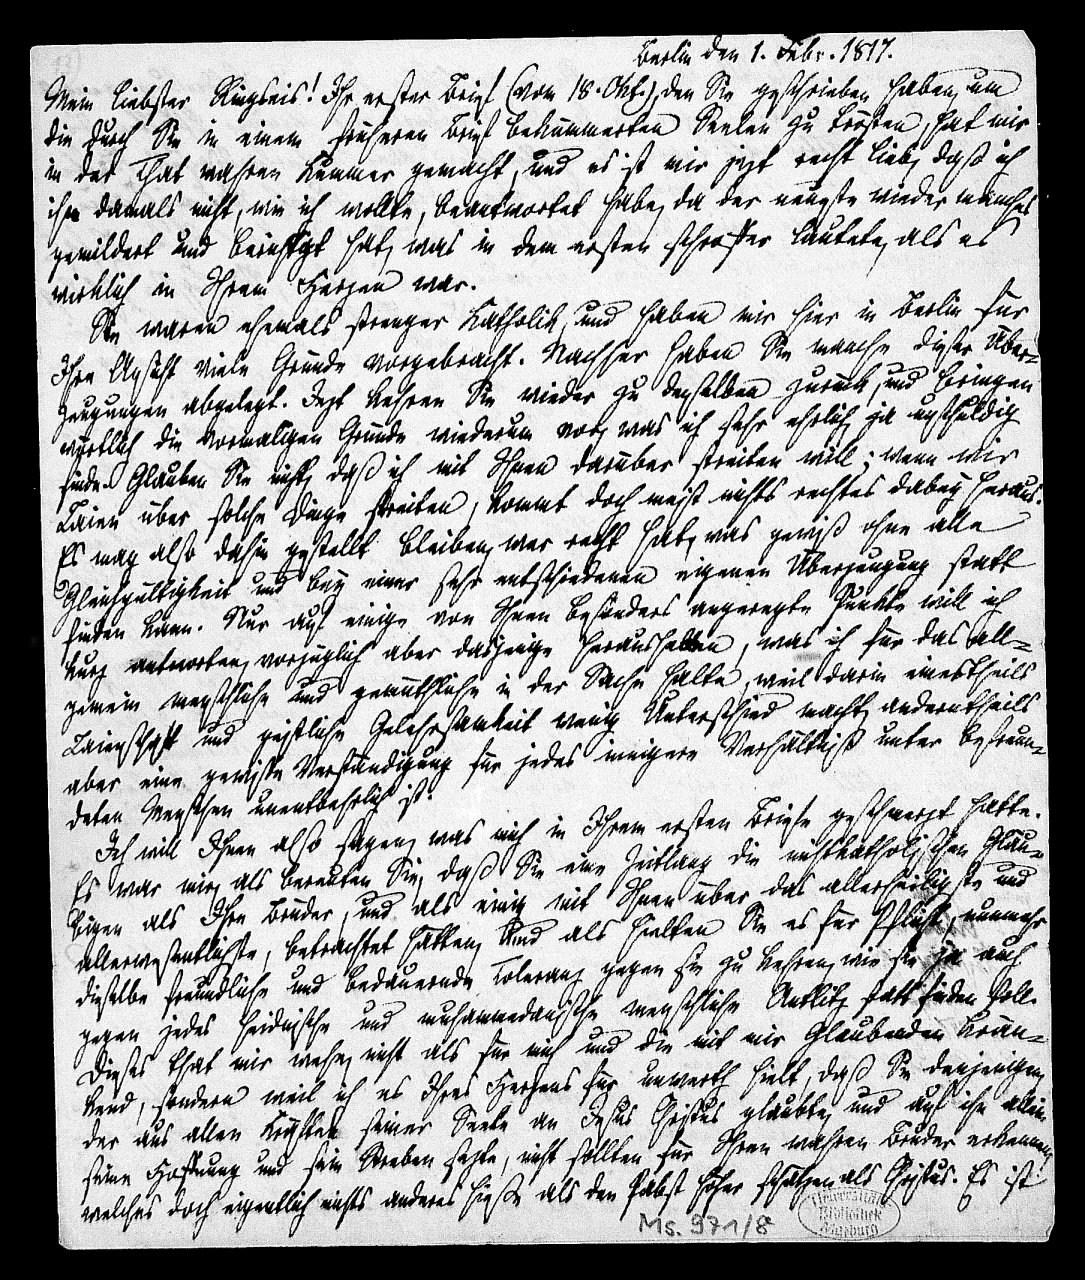 Berlin den 1. Febr. 1817.
Mein liebster Ringseis! Ihr erster Brief (vom 18. Okt.), den Sie geschrieben haben, um
die durch Sie in einem früheren Brief bekümmerten Seelen zu trösten, hat mir
in der That wahren Kummer gemacht, und es ist mir jezt recht lieb, daß ich
ihn damals nicht, wie ich wollte, beantwortet habe, da der neuste wieder manches
gemildert und berichtigt hat, was in dem ersten schroffer lautete, als es
wirklich in Ihrem Herzen war.
Sie waren ehemals strenger Katholik, und haben mir hier in Berlin für
Ihre Ansicht viele Gründe vorgebracht. Nachher haben Sie manche dieser Über-
zeugungen abgelegt. Jezt kehren Sie wieder zu denselben zurück, und bringen
wörtlich die vormaligen Gründe wiederum vor, was ich sehr ehrlich, ja unschuldig
finde. Glauben Sie nicht, daß ich mit Ihnen darüber streiten will; wenn wir
Laien über solche Dinge streiten, kommt doch meist nichts rechtes dabey heraus.
Es mag also dahin gestellt bleiben, wer recht hat, was gewiß ohne alle
Gleichgültigkeit und bey einer sehr entschiedenen eigenen Überzeugung statt
finden kann. Nur auf einige von Ihnen besonders angeregte Punkte will ich
kurz antworten, vorzüglich aber dasjenige herausheben, was ich für das all-
gemein menschliche und gemüthliche in der Sache halte, weil darin einestheils
Laienschaft und geistliche Gelehrsamkeit wenig Unterschied macht, anderntheils
aber eine gewisse Verständigung für jedes innigere Verhältniß unter befreun-
deten Menschen unentbehrlich ist.
Ich will Ihnen also sagen, was mich in Ihrem ersten Briefe geschmerzt hatte.
Es war mir, als bereuten Sie, daß Sie eine Zeitlang die nichtkatholischen Gläu-
bigen als Ihre Brüder, und als einig mit Ihnen über das allerheiligste und
allerwesentlichste, betrachtet hätten, und als hielten Sie es für Pflicht, nunmehr
dieselbe freundliche und bedauernde Toleranz gegen sie zu kehren, wie sie ja auch
gegen jedes heidnische und muhammedanische menschliche Antlitz statt finden soll.
Dieses that mir wehe, nicht als für mich und die mit mir Glaubenden krän-
kend, sondern weil ich es Ihres Herzens für unwerth hielt, daß Sie denjenigen,
der aus allen Kräften seiner Seele an Jesus Christus glaubte, und auf ihn allein
seine Hoffnung und sein Streben sezte, nicht sollten für Ihren wahren Bruder erkennen,
welches doch eigentlich nichts anderes hieße als den Pabst höher schätzen als Christus. Es ist
Ms. 971/8
Universitäts
Bibliothek